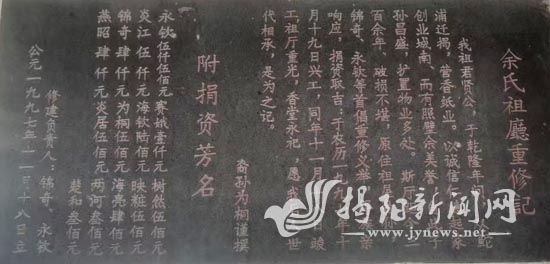 余氏祖廳重修記
我祖君贤公，于乾隆年间
浦迁揭，营香纸业。以诚信
创业城南，而有服整余美誉
孙昌盛，扩置物业多处。斯厅
百余年，破损不堪，原住祖
锦奇、永钦等首倡重修义举
响应，捐资取吉；于农历一九九
月十九日兴工，同年十一月
工，祖厅重光，香堂永祀，愿我
代相承，是为之记。
裔孙为桐谨撰
附捐资芳名
永钦伍仟伍佰元
炎江伍仟元
锦奇肆仟元
燕昭肆仟元
娥壹仟元
海钦陆佰元
为桐伍佰元
炎居伍佰元
树然伍佰元
映粧伍佰元
海亮肆佰元
两河叁佰元
楚和叁佰元
修建负责人：锦奇、永钦
公元一九九七年十一月十八日立
揭阳新闻网
www.jynews.net